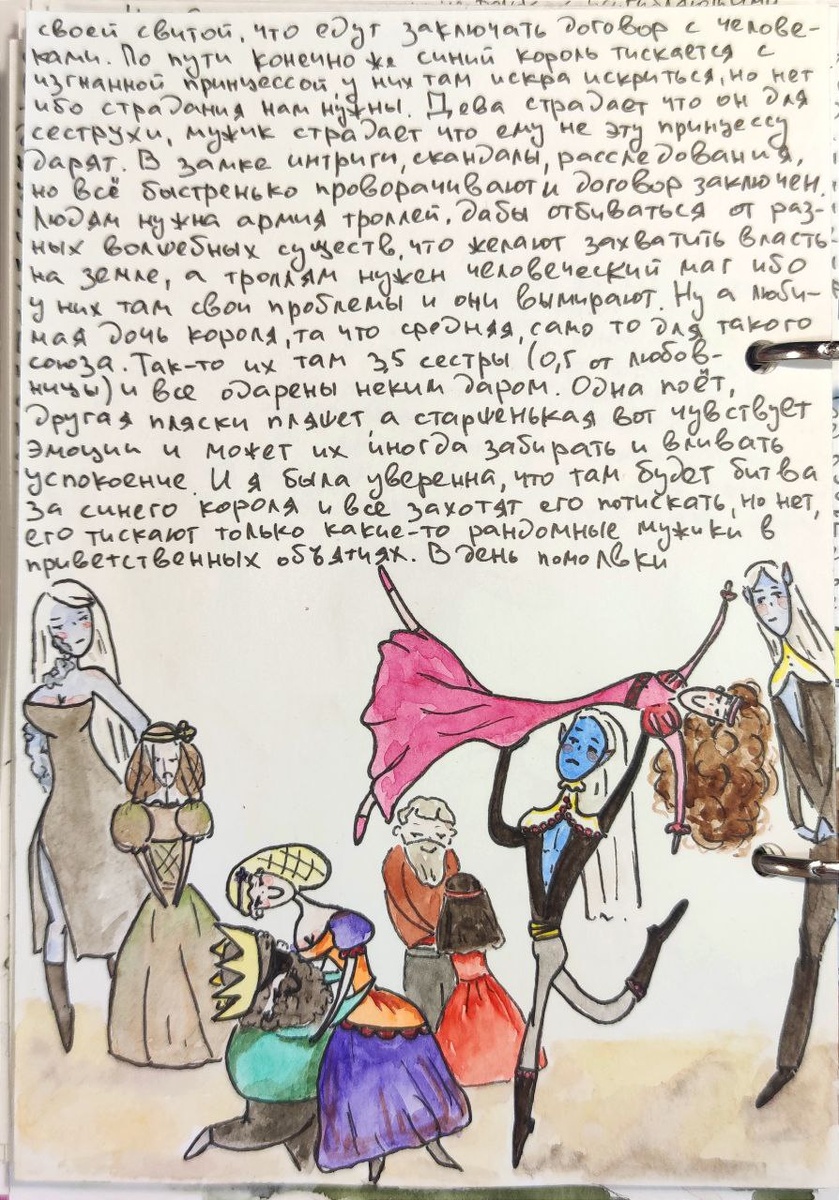 своей свитой, что едут заключать договор с челове-
ками. По пути конечно же синий король тискается с
изгнанной принцессой, у них там искра искриться, но нет
ибо страдания нам нужны. Дева страдает что он для
сеструхи, мужик страдает что ему не эту принцессу
дарят. В замке интриги, скандалы, расследования,
но всё быстренько проворачивают и договор заключен.
Людям нужна армия троллей, дабы отбиваться от раз-
ных волшебных существ, что желают захватить власть
на земле, а троллям нужен человеческий маг ибо
у них там свои проблемы и они вымирают. Ну а люби-
мая дочь короля, та что средняя, само то для такого
союза. Так-то их там 3,5 сестры (0,5 от любов-
ницы) и все одарены неким даром. Одна поёт,
другая пляски пляшет, а старшенькая вот чувствует
эмоции и может их иногда забирать и вливать
успокоение. И я была уверенна, что там будет битва
за синего короля и все захотят его потискать, но нет,
его тискают только какие-то рандомные мужики в
приветственных объятиях. В день помолвки